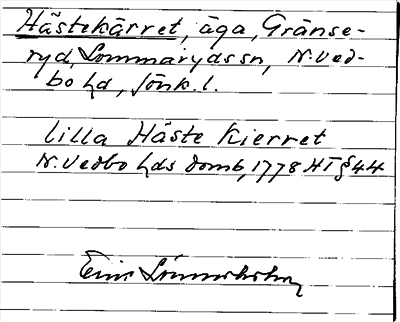 Hästekärret, äga, Gränse-
ryd, Lommaryds sn, N. Ved-
bo hd, Jönk. l.
lilla Häste Kierret
N. Vedbo hds domb, 1778 HT § 44